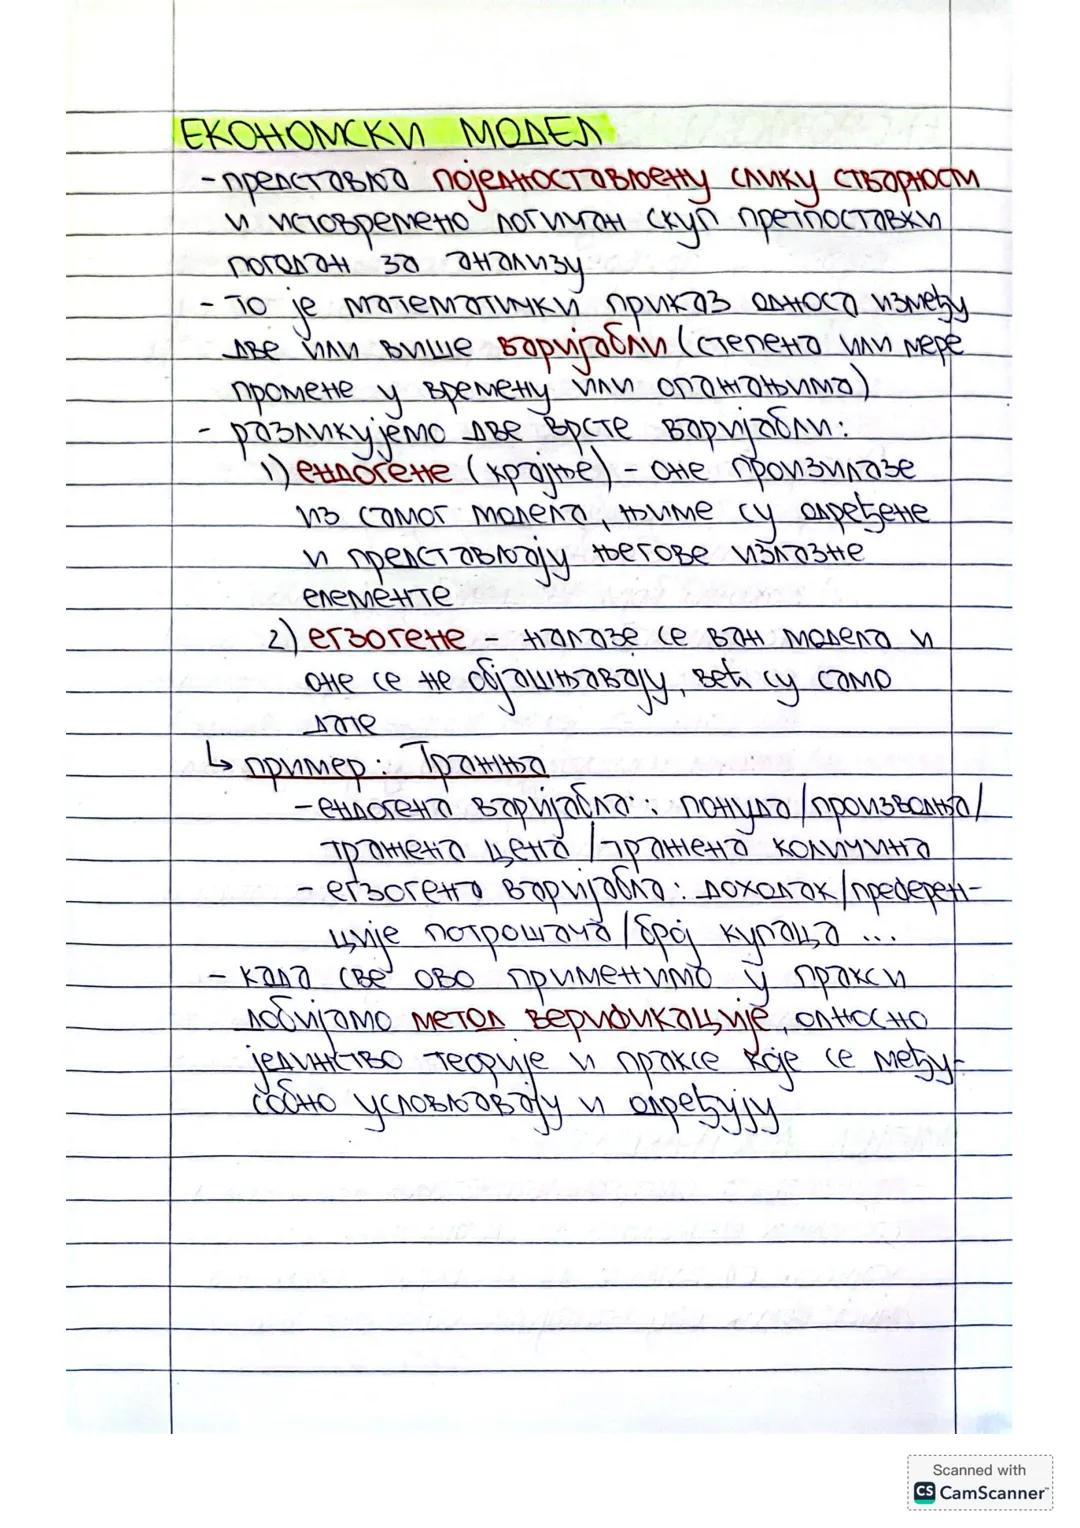 ЕКОНОМСКИ МОДЕЛ
- представља поједностављену слику стварности
и истовремено логичан скуп претпоставки
погодан за анализу
- то је математички приказ односа између
две или више варијабли (степена или мере
промене у времену или опажањима)
- разликујемо две врсте варијабли:
1) ендогене (крајње) - оне произилазе
из самог модела, њиме су одређене
и представљају његове излазне
елементе
2) егзогене - налазе се ван модела и
оне се не објашњавају, већ су само
дате
↳ пример: Тражња
- ендогена варијабла: понуда/производња/
тражена цена/тражена количина
- егзогена варијабла: доходак/преферен-
ције потрошача/број купаца ...
- када све ово применимо у пракси
добијамо метод верификације, односно
јединство теорије и праксе које се међу-
собно условљавају и одређују
Scanned with
CS CamScanner